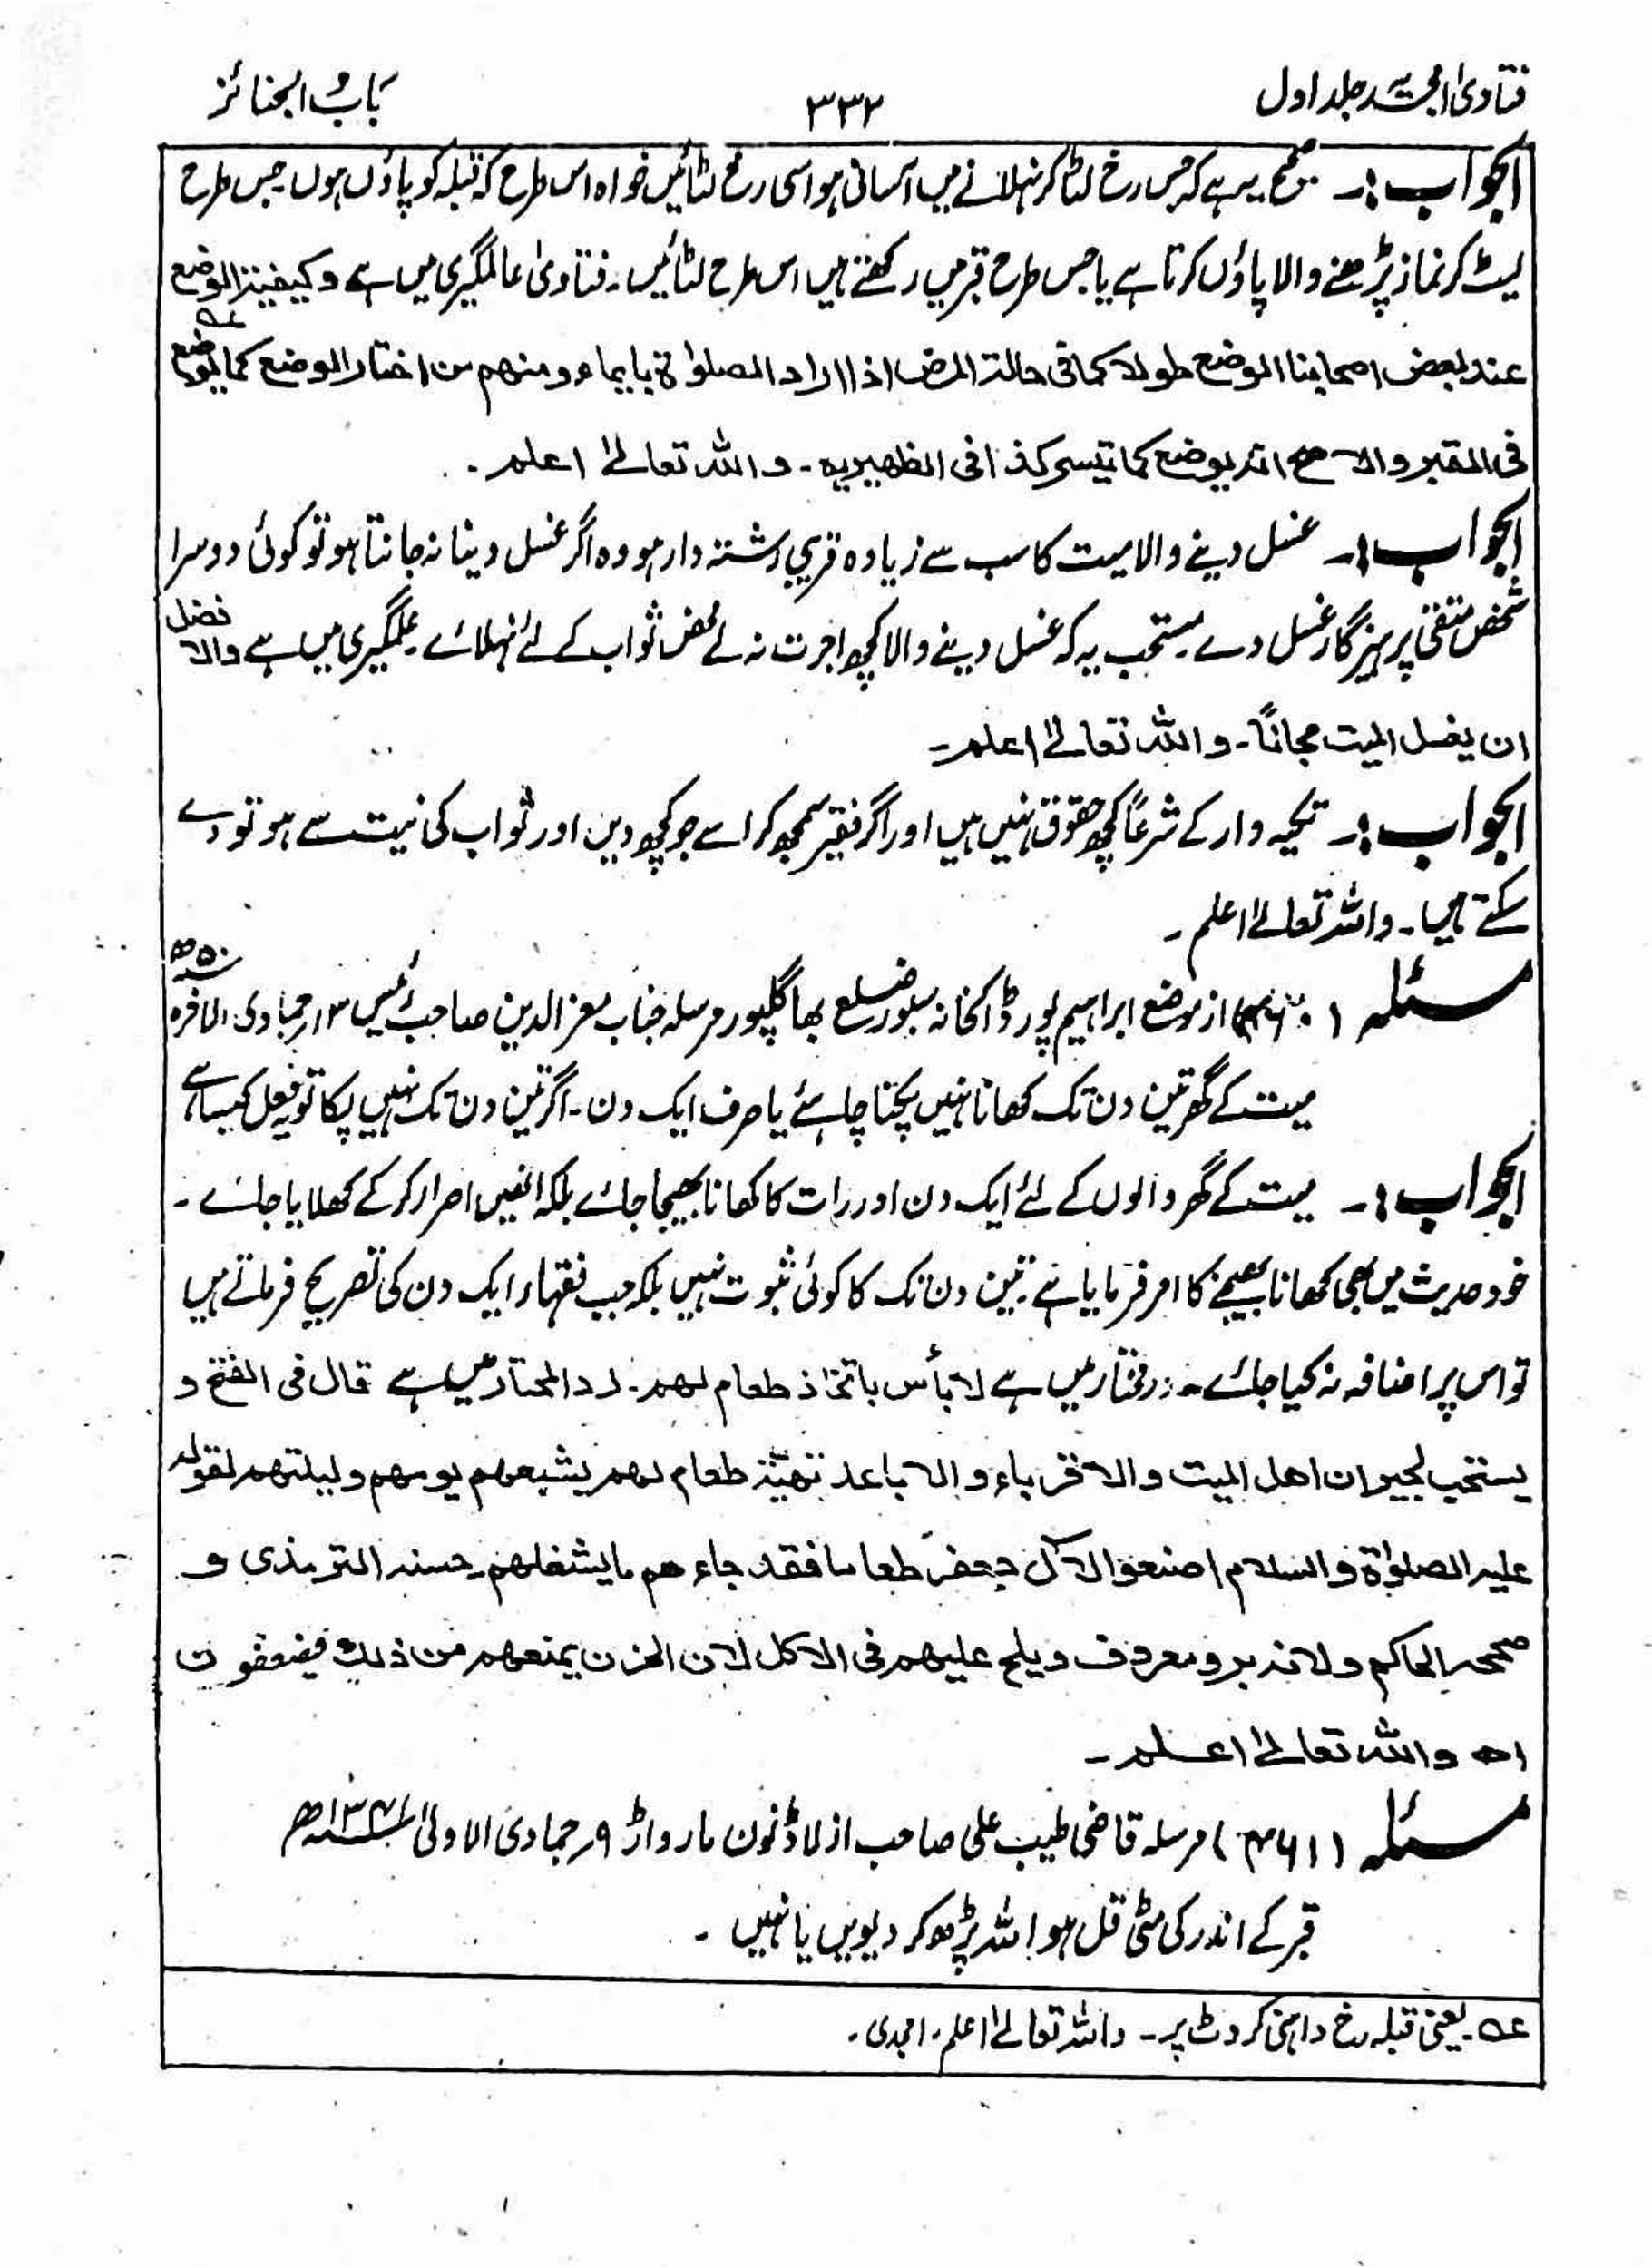 فتاویٰ امجدیہ جلد اول
۳۳۲
کتاب الجنائز
الجواب :۔ صحیح یہ ہے کہ جس رخ لٹا کر نہلانے میں آسانی ہو اسی رخ لٹائیں خواہ اس طرح کہ قبلہ کو پاؤں ہوں جس طرح
لیٹ کر نماز پڑھنے والا پاؤں کرتا ہے یا جس طرح قبر میں رکھتے ہیں اس طرح لٹائیں۔ فتاویٰ عالمگیری میں ہے وکیفیۃ الوضع
عند بعض اصحابنا الوضع طولا کما فی حالۃ المرض اذا اراد الصلوٰۃ بایماء ومنھم من اختار الوضع کما یوضع عہ
فی القبر والاصح انہ یوضع کما تیسر کذا فی الظھیریہ۔ واللہ تعالیٰ اعلم۔
الجواب :۔ غسل دینے والا میت کا سب سے زیادہ قریبی رشتہ دار ہو وہ اگر غسل دینا نہ جانتا ہو تو کوئی دوسرا
شخص متقی پرہیزگار غسل دے۔ مستحب یہ کہ غسل دینے والا کچھ اجرت نہ لے محض ثواب کے لئے نہلائے۔ علمگیری میں ہے والافضل
ان یغسل المیت مجاناً۔ واللہ تعالیٰ اعلم۔
الجواب :۔ تکیہ دار کے شرعاً کچھ حقوق نہیں ہیں اور اگر فقیر سمجھ کر اسے جو کچھ دیں اور ثواب کی نیت سے ہو تو دے
سکتے ہیں۔ واللہ تعالےٰ اعلم۔
مسئلہ (۴۶۰) از موضع ابراہیم پور ڈاکخانہ سبور ضلع بھاگلپور مرسلہ جناب معز الدین صاحب رئیس ۱۳ جمادی الآخرہ ۵۰ھ
میت کے گھر تین دن تک کھانا نہیں پکنا چاہئے یا صرف ایک دن۔ اگر تین دن تک نہیں پکا تو یہ فعل کیسا ہے
الجواب :۔ میت کے گھر والوں کے لئے ایک دن اور رات کا کھانا بھیجا جائے بلکہ انھیں اصرار کر کے کھلایا جائے۔
خود حدیث میں بھی کھانا بھیجنے کا امر فرمایا ہے تین دن تک کا کوئی ثبوت نہیں بلکہ جب فقہاء ایک دن کی تصریح فرماتے ہیں
تو اس پر اضافہ نہ کیا جائے۔ درمختار میں ہے لا بأس باتخاذ طعام لھم۔ رد المحتار میں ہے قال فی الفتح و
یستحب لجیران اھل المیت والاقرباء والاباعد تھیئۃ طعام لھم یشبعھم یومھم ولیلتھم لقولہ
علیہ الصلوٰۃ والسلام اصنعوا لاٰل جعفر طعاما فقد جاءھم ما یشغلھم۔ حسنہ الترمذی و
صححہ الحاکم ولانہ بر ومعروف ویلح علیھم فی الاکل لان الحزن یمنعھم من ذلک فیضعفون
اھ واللہ تعالیٰ اعلم۔
مسئلہ (۴۶۱) مرسلہ قاضی طیب علی صاحب از لاڈنون مارواڑ ۹ر جمادی الاولیٰ
قبر کے اندر کی مٹی قل ہو اللہ پڑھ کر دیویں یا نہیں ۔
عہ۔ یعنی قبلہ رخ داہنی کروٹ پر۔ واللہ تعالےٰ اعلم۔ امجدی۔